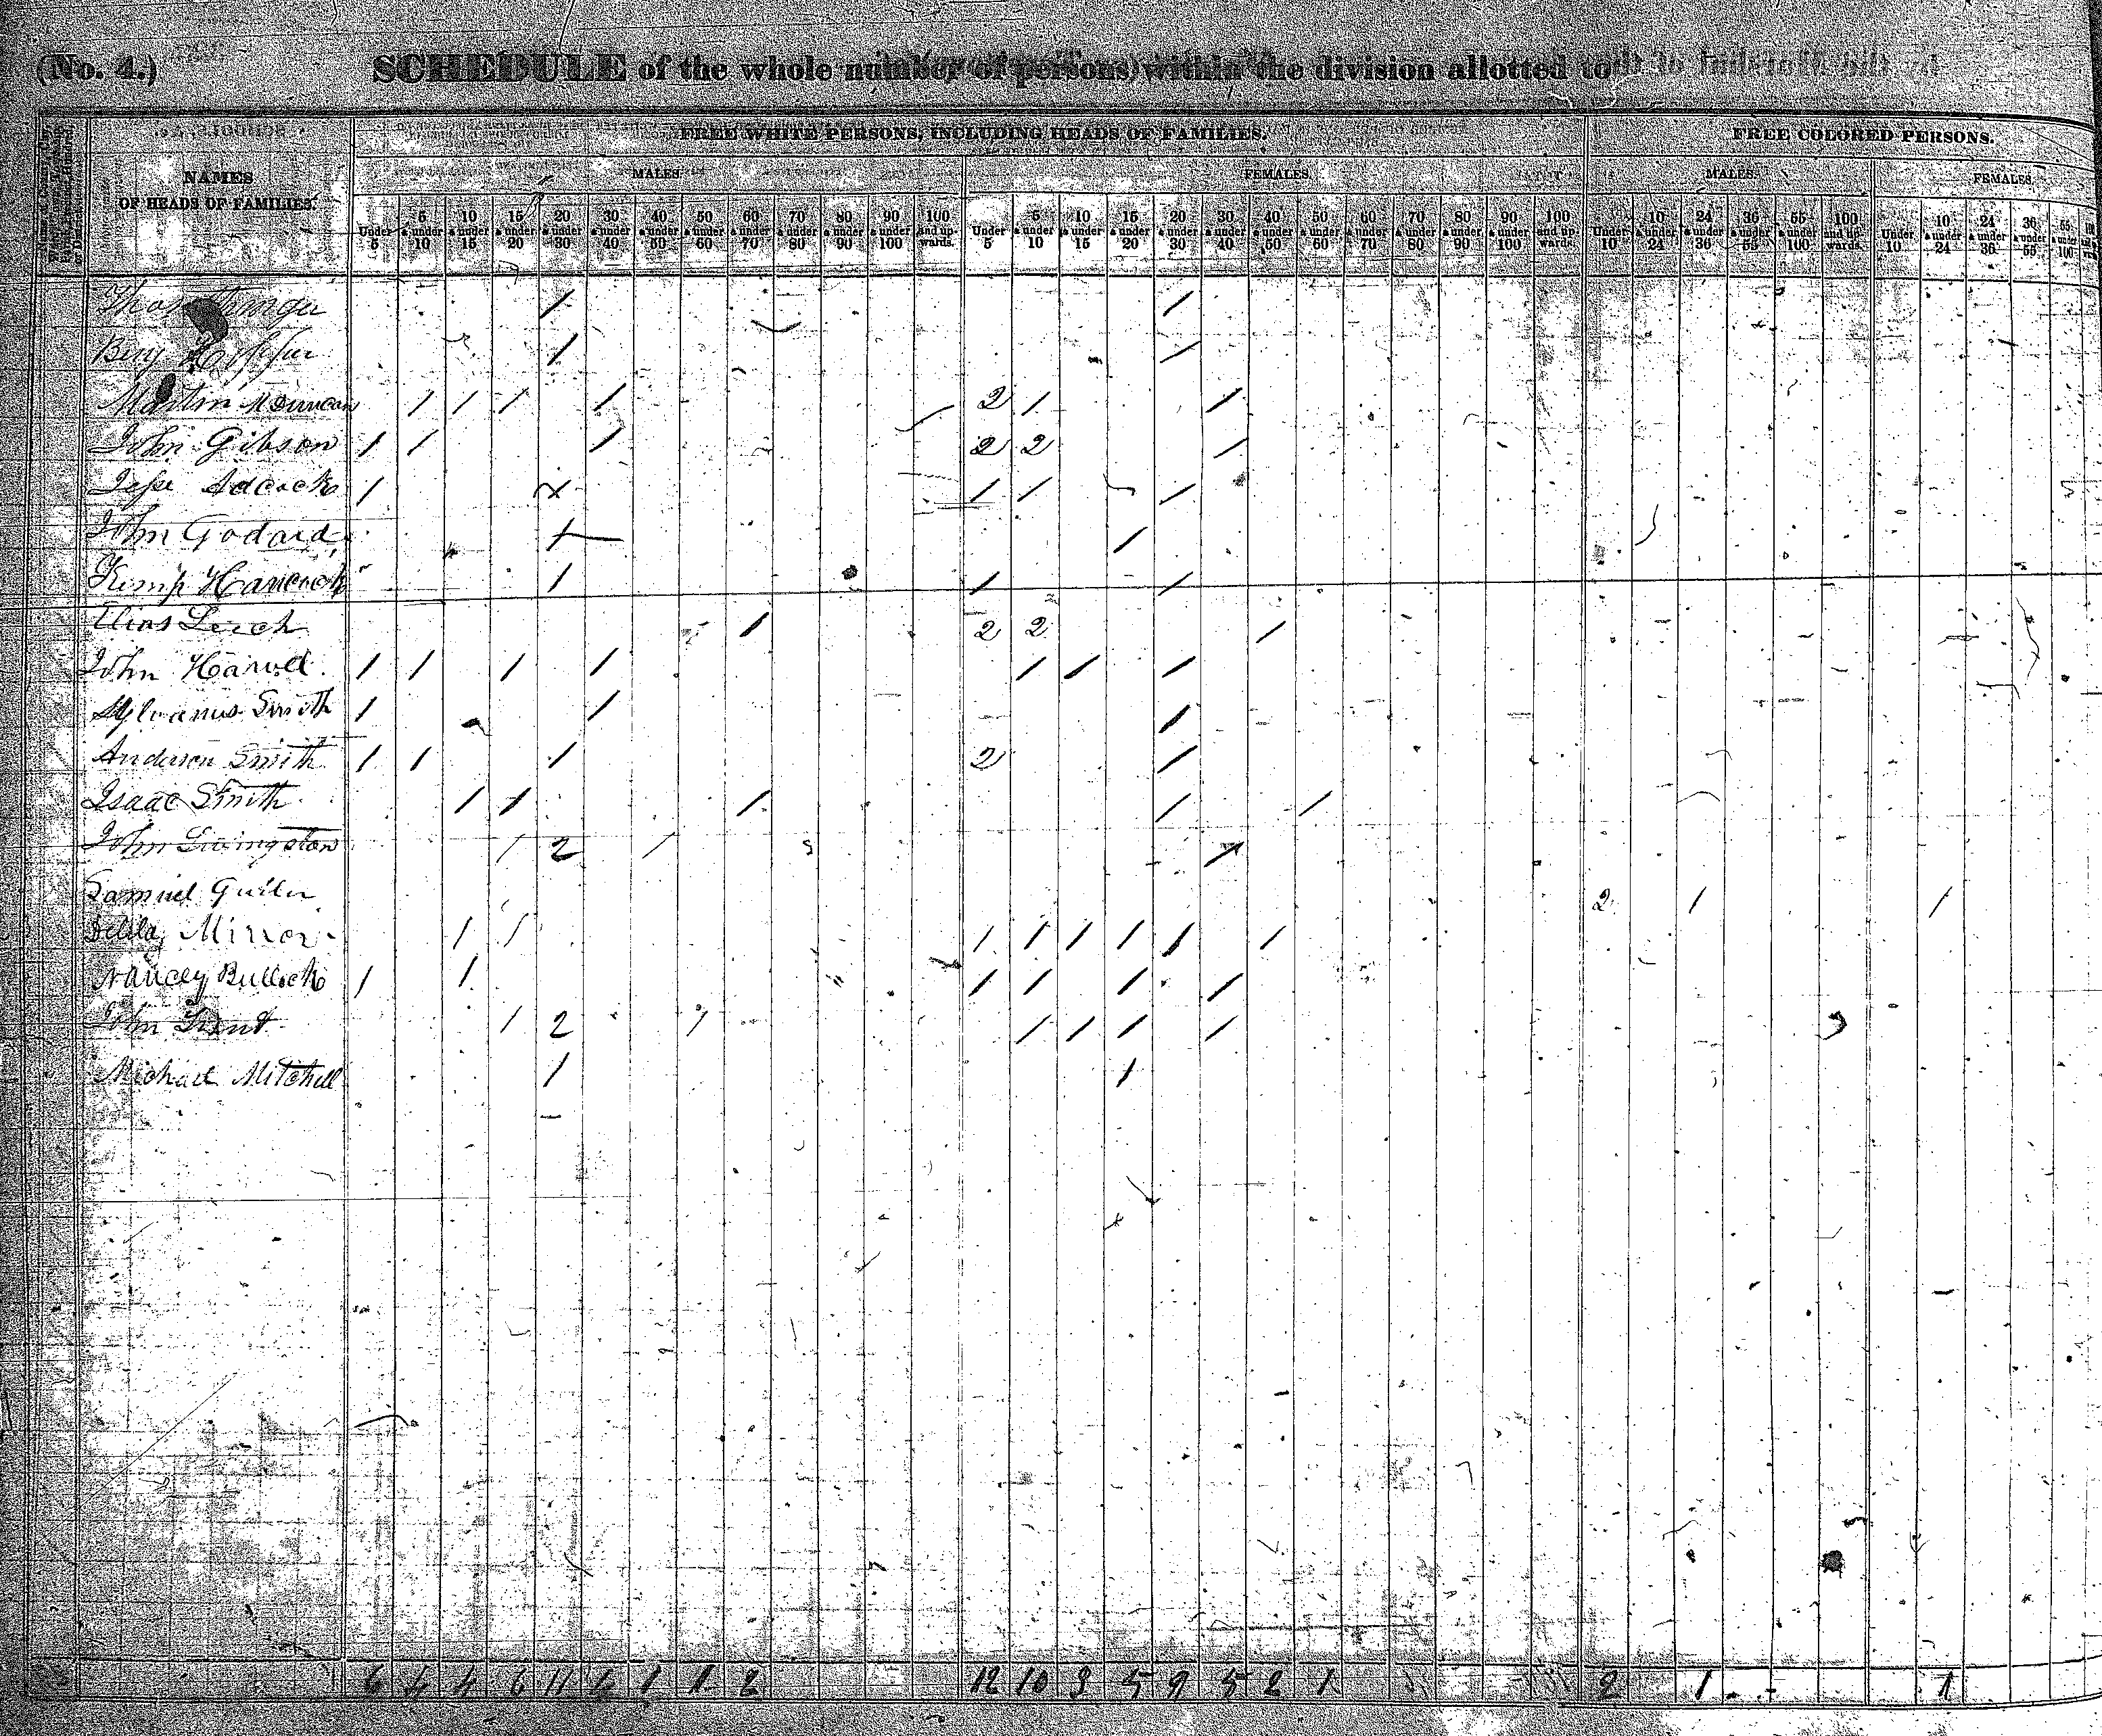 (No. 4.) SCHEDULE of the whole number of persons within the division allotted to
FREE WHITE PERSONS, INCLUDING HEADS OF FAMILIES. FREE COLORED PERSONS.
NAMES OF HEADS OF FAMILIES. MALES. FEMALES. MALES. FEMALES.
Under 5 5 & under 10 10 & under 15 15 & under 20 20 & under 30 30 & under 40 40 & under 50 50 & under 60 60 & under 70 70 & under 80 80 & under 90 90 & under 100 100 and upwards. Under 5 5 & under 10 10 & under 15 15 & under 20 20 & under 30 30 & under 40 40 & under 50 50 & under 60 60 & under 70 70 & under 80 80 & under 90 90 & under 100 100 and upwards. Under 10 10 & under 24 24 & under 36 36 & under 55 55 & under 100 100 and upwards. Under 10 10 & under 24 24 & under 36 36 & under 55 55 & under 100
1 1
Benj 1 1
Martin M Duncan 1 1 1 1 2 1 1
John Gibson 1 1 1 2 2 1
Jesse Adcock 1 1 1 1
John Godard 1 1
Kemp Hancock 1 1 1
Elias Leech 1 2 2 1
John Harvel 1 1 1 1 1 1 1
Sylvanus Smith 1 1 1
Anderson Smith 1 1 1 2 1
Isaac Smith 1 1 1 1 1
John Livingston 1 2 1 1
Samuel 2 1 1
1 1 1 1 1 1 1 1
Nancy Bullock 1 1 1 1 1 1
John 1 2 1 1 1 1 1
Michael Mitchell 1 1
6 4 4 6 11 4 1 1 2 12 10 3 5 9 5 2 1 2 1 1